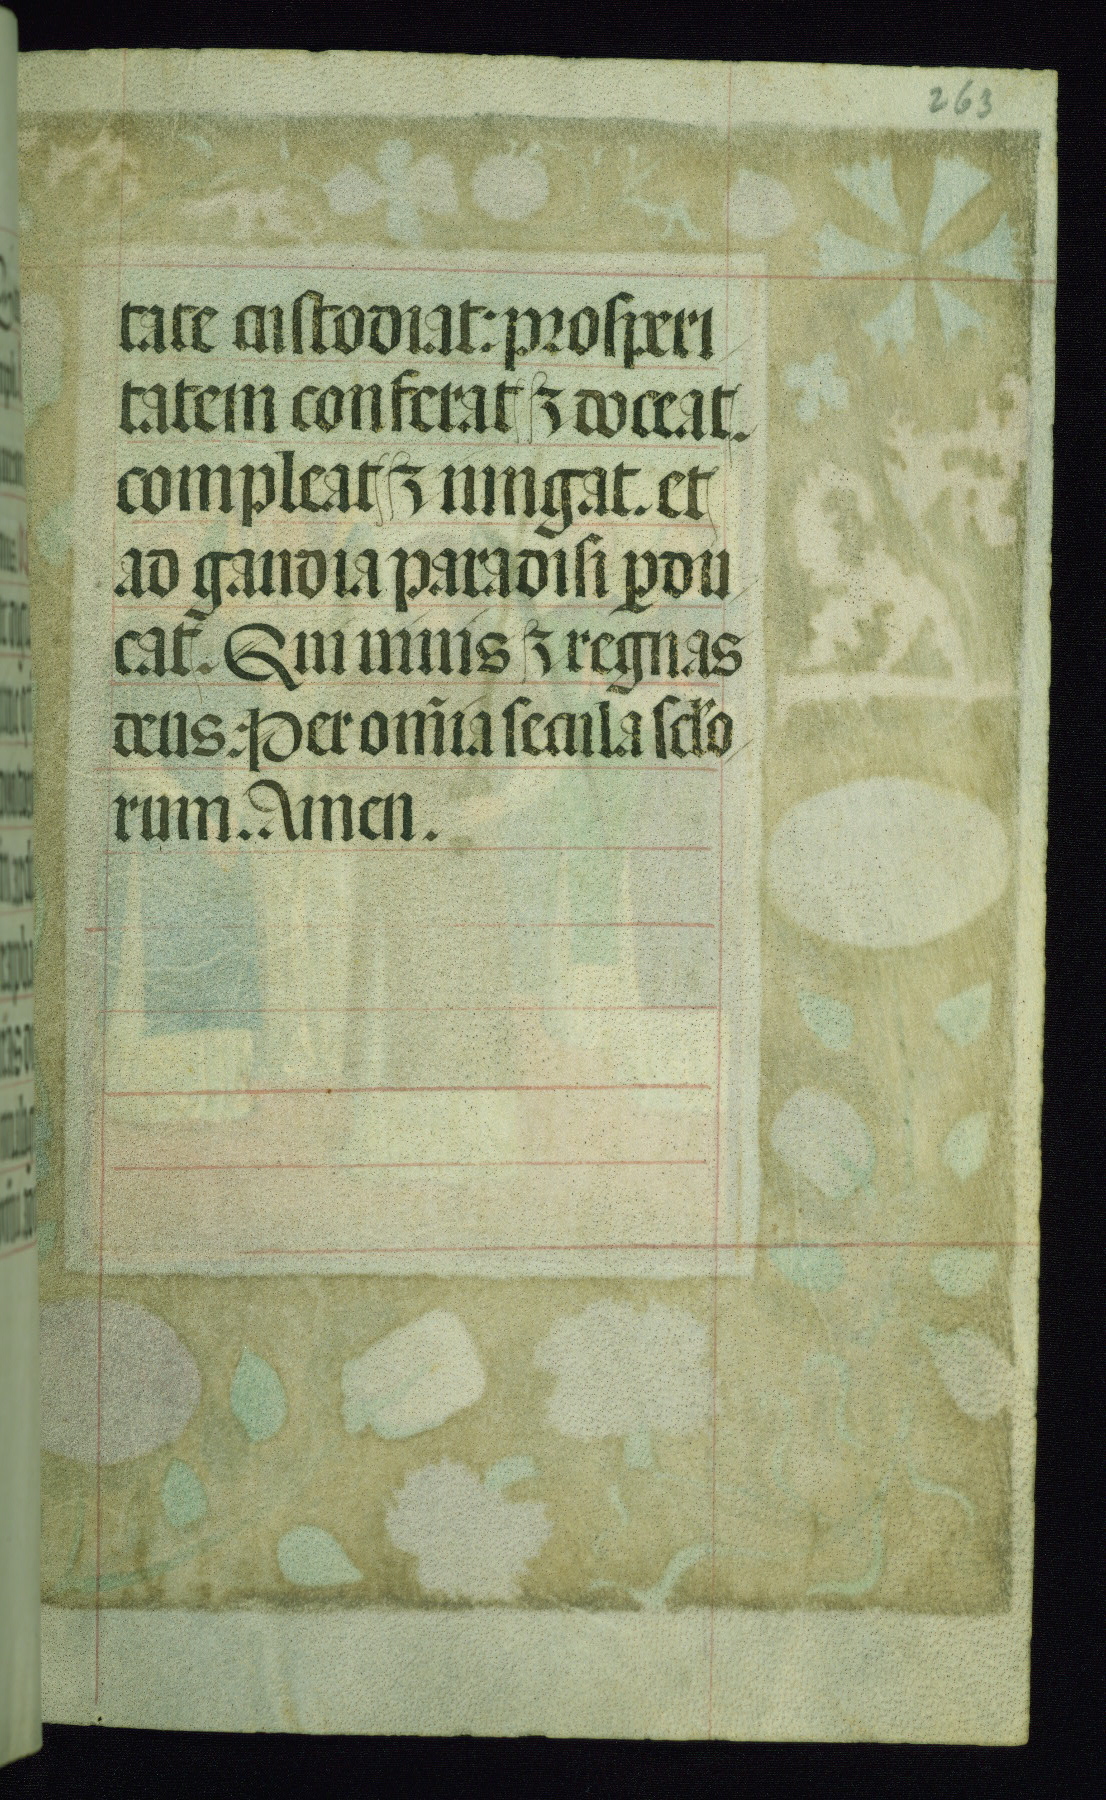 263
tate custodiat: prosperi
tatem conferat ⁊ doceat.
compleat ⁊ iungat. et
ad gaudia paradisi ꝑdu
cat. Qui uiuis ⁊ regnas
deus. Per om̄ia secula sclo
rum. Amen.